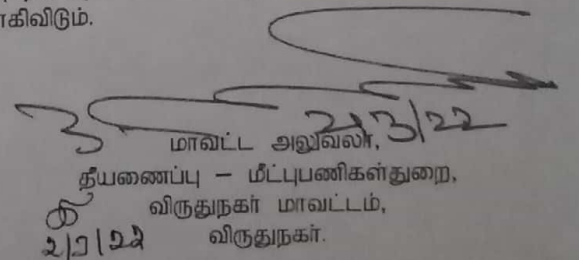 ாகிவிடும்.
2/3/22
மாவட்ட அலுவலர்,
தீயணைப்பு – மீட்புபணிகள்துறை,
விருதுநகர் மாவட்டம்,
2/3/22 விருதுநகர்.